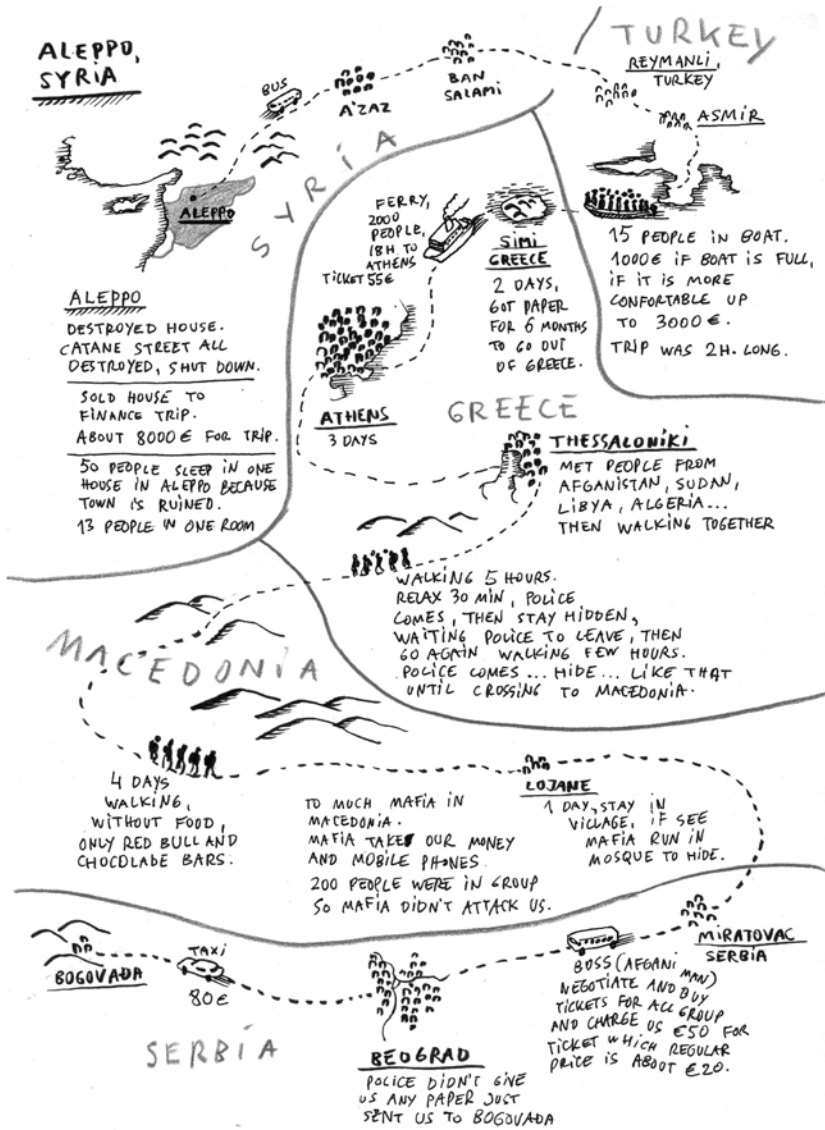 ALEPPO,
SYRIA
TURKEY
REYMANLI,
TURKEY
BUS
A'ZAZ
BAN
SALAMI
ASMIR
SYRIA
ALEPPO
FERRY,
2000
PEOPLE,
18H. TO
ATHENS
TICKET 55€
SIMI
GREECE
2 DAYS,
GOT PAPER
FOR 6 MONTHS
TO GO OUT
OF GREECE.
15 PEOPLE IN BOAT.
1000€ IF BOAT IS FULL,
IF IT IS MORE
CONFORTABLE UP
TO 3000€.
TRIP WAS 2H. LONG.
ALEPPO
DESTROYED HOUSE.
CATANE STREET ALL
DESTROYED, SHUT DOWN.
SOLD HOUSE TO
FINANCE TRIP.
ABOUT 8000€ FOR TRIP.
50 PEOPLE SLEEP IN ONE
HOUSE IN ALEPPO BECAUSE
TOWN IS RUINED.
13 PEOPLE IN ONE ROOM
ATHENS
3 DAYS
GREECE
THESSALONIKI
MET PEOPLE FROM
AFGANISTAN, SUDAN,
LIBYA, ALGERIA...
THEN WALKING TOGETHER
WALKING 5 HOURS.
RELAX 30 MIN, POLICE
COMES, THEN STAY HIDDEN,
WAITING POLICE TO LEAVE, THEN
GO AGAIN WALKING FEW HOURS.
POLICE COMES... HIDE... LIKE THAT
UNTIL CROSSING TO MACEDONIA.
MACEDONIA
4 DAYS
WALKING,
WITHOUT FOOD,
ONLY RED BULL AND
CHOCOLADE BARS.
TO MUCH MAFIA IN
MACEDONIA.
MAFIA TAKE OUR MONEY
AND MOBILE PHONES.
200 PEOPLE WERE IN GROUP
SO MAFIA DIDN'T ATTACK US.
LOJANE
1 DAY, STAY IN
VILLAGE, IF SEE
MAFIA RUN IN
MOSQUE TO HIDE.
MIRATOVAC
SERBIA
BOSS (AFGANI MAN)
NEGOTIATE AND BUY
TICKETS FOR ALL GROUP
AND CHARGE US €50 FOR
TICKET WHICH REGULAR
PRICE IS ABOUT €20.
BOGOVAĐA
TAXI
80€
SERBIA
BEOGRAD
POLICE DIDN'T GIVE
US ANY PAPER JUST
SENT US TO BOGOVAĐA